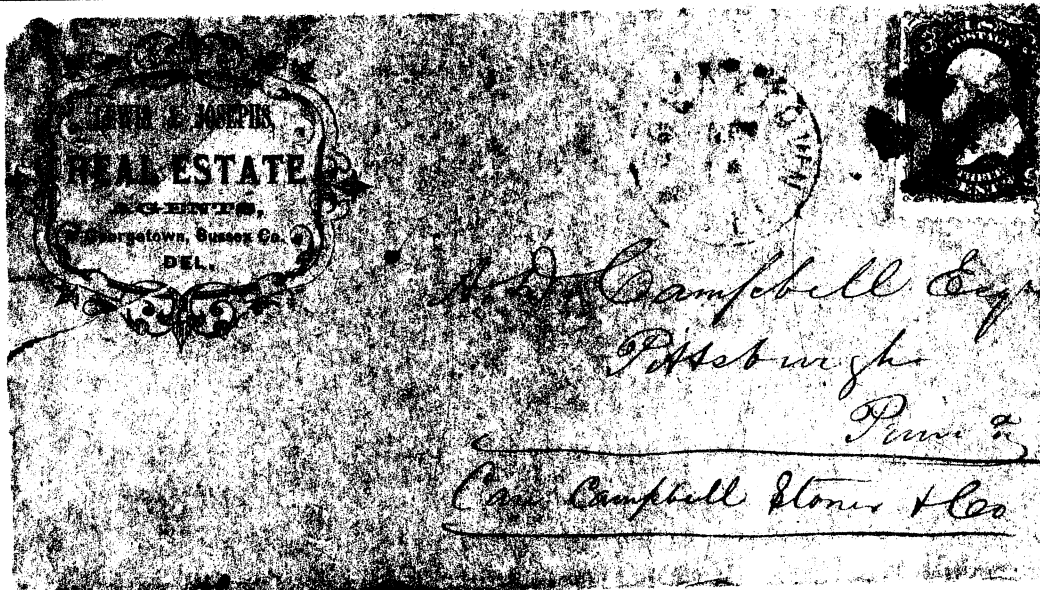 & JOSEPHS,
REAL ESTATE
AGENTS,
Georgetown, Sussex Co.,
DEL.
POSTAGE
CENTS
A. D. Campbell Esqr
Pittsburgh
Penn a
Care Campbell Stoner & Co